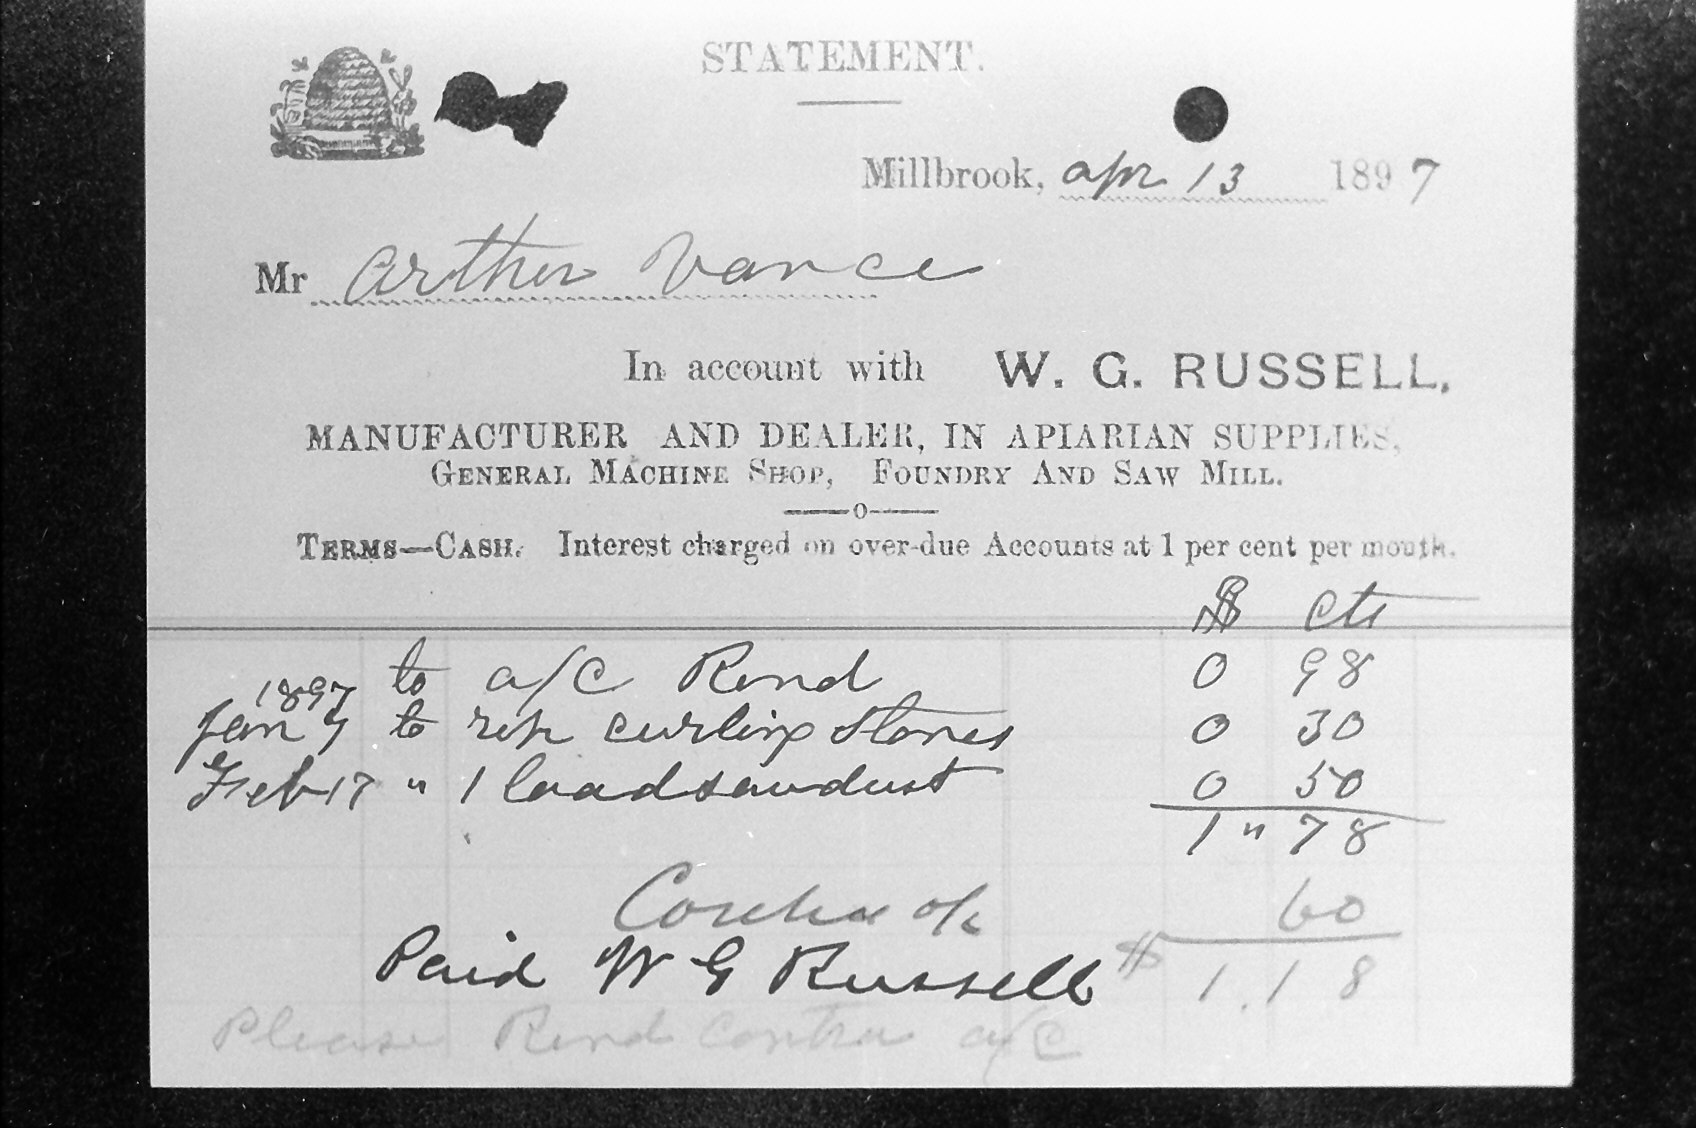 STATEMENT.
Millbrook, apr 13 1897
Mr Arthur Vance
In account with W. G. RUSSELL,
MANUFACTURER AND DEALER, IN APIARIAN SUPPLIES,
GENERAL MACHINE SHOP, FOUNDRY AND SAW MILL.
—o—
TERMS—CASH. Interest charged on over-due Accounts at 1 per cent per month.
$ cts
to a/c Rend 0 98
1897
Jan 7 to rep curling stones 0 30
Feb 17 " 1 load sawdust 0 50
1 " 78
Contra a/c 60
Paid W G Russell $ 1.18
Please Rend contra a/c